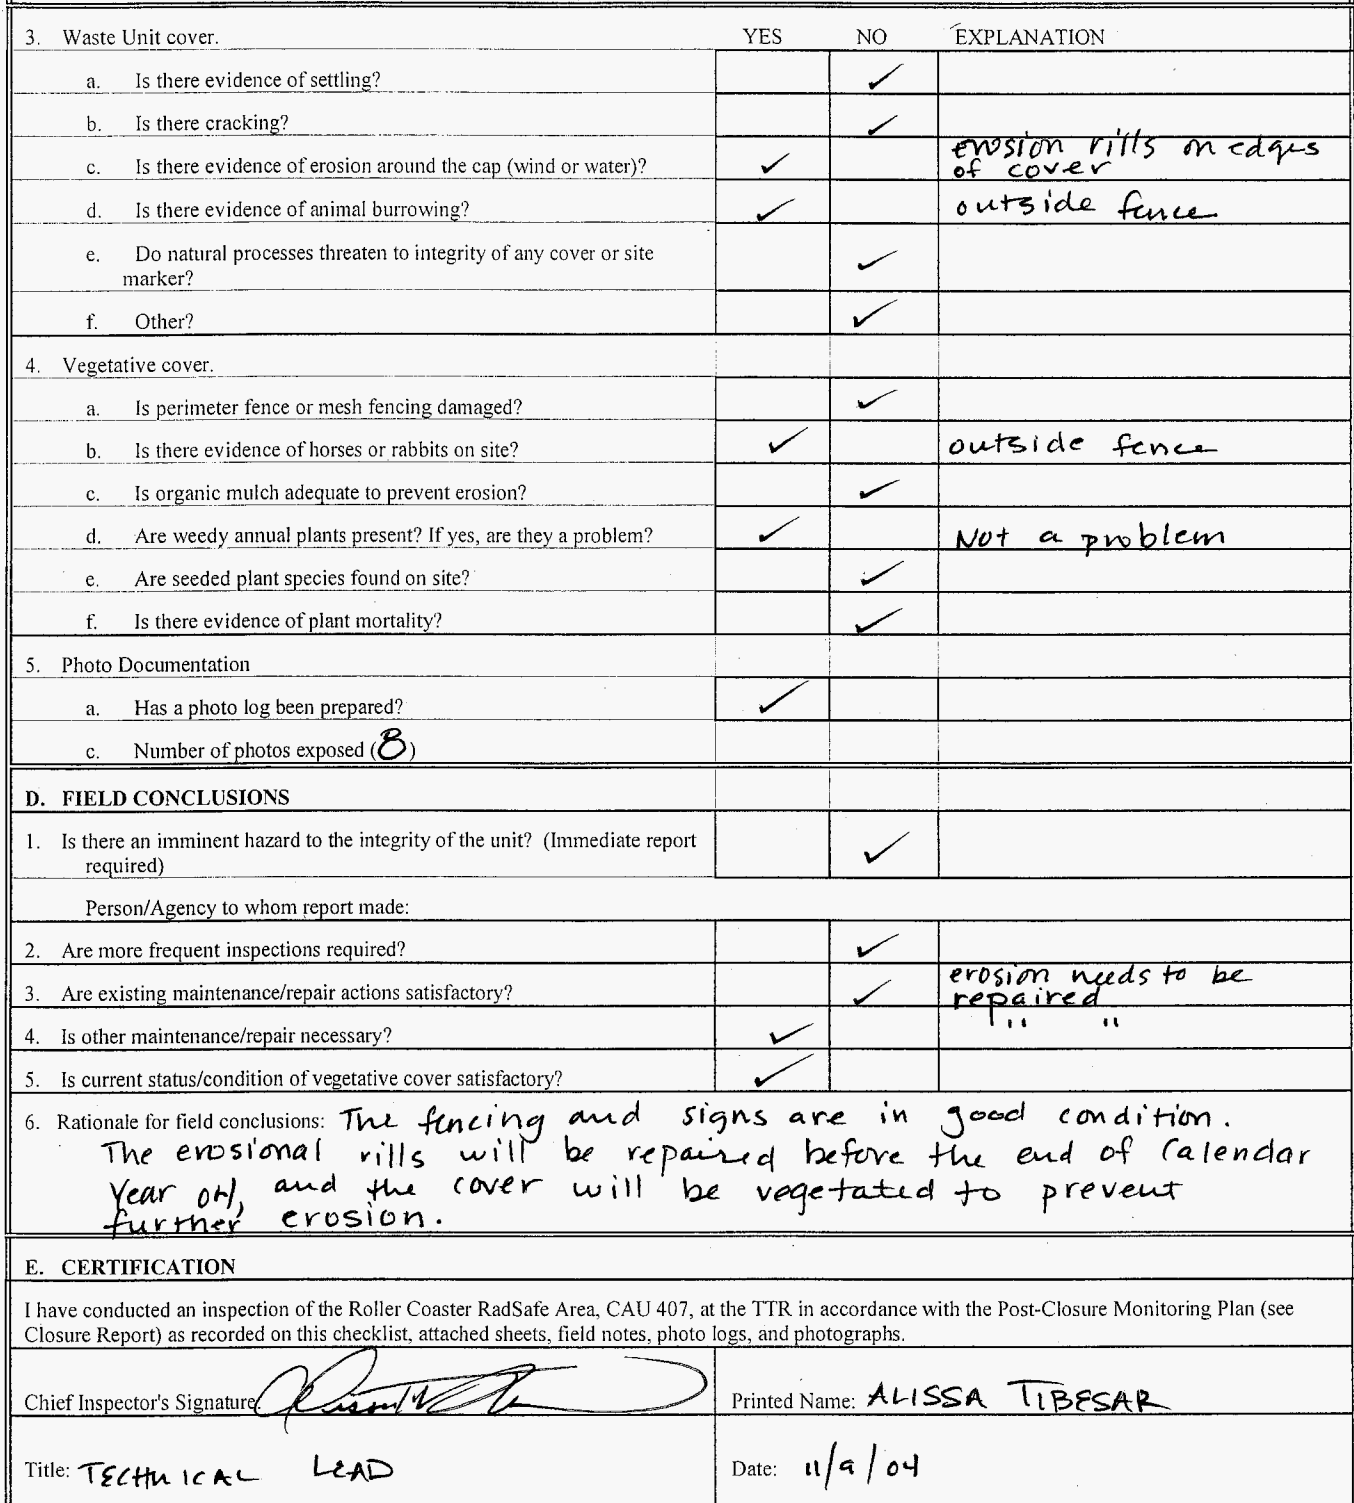 3. Waste Unit cover. YES NO EXPLANATION
a. Is there evidence of settling? ✓
b. Is there cracking? ✓
c. Is there evidence of erosion around the cap (wind or water)? ✓ erosion rills on edges
of cover
d. Is there evidence of animal burrowing? ✓ outside fence
e. Do natural processes threaten to integrity of any cover or site
marker? ✓
f. Other? ✓
4. Vegetative cover.
a. Is perimeter fence or mesh fencing damaged? ✓
b. Is there evidence of horses or rabbits on site? ✓ outside fence
c. Is organic mulch adequate to prevent erosion? ✓
d. Are weedy annual plants present? If yes, are they a problem? ✓ Not a problem
e. Are seeded plant species found on site? ✓
f. Is there evidence of plant mortality? ✓
5. Photo Documentation
a. Has a photo log been prepared? ✓
c. Number of photos exposed (8)
D. FIELD CONCLUSIONS
1. Is there an imminent hazard to the integrity of the unit? (Immediate report
required) ✓
Person/Agency to whom report made:
2. Are more frequent inspections required? ✓
3. Are existing maintenance/repair actions satisfactory? ✓ erosion needs to be
repaired
4. Is other maintenance/repair necessary? ✓ " "
5. Is current status/condition of vegetative cover satisfactory? ✓
6. Rationale for field conclusions: The fencing and signs are in good condition.
The erosional rills will be repaired before the end of Calendar
Year 04, and the cover will be vegetated to prevent
further erosion.
E. CERTIFICATION
I have conducted an inspection of the Roller Coaster RadSafe Area, CAU 407, at the TTR in accordance with the Post-Closure Monitoring Plan (see
Closure Report) as recorded on this checklist, attached sheets, field notes, photo logs, and photographs.
Chief Inspector's Signature:
Printed Name: ALISSA TIBESAR
Title: TECHNICAL LEAD
Date: 11/9/04